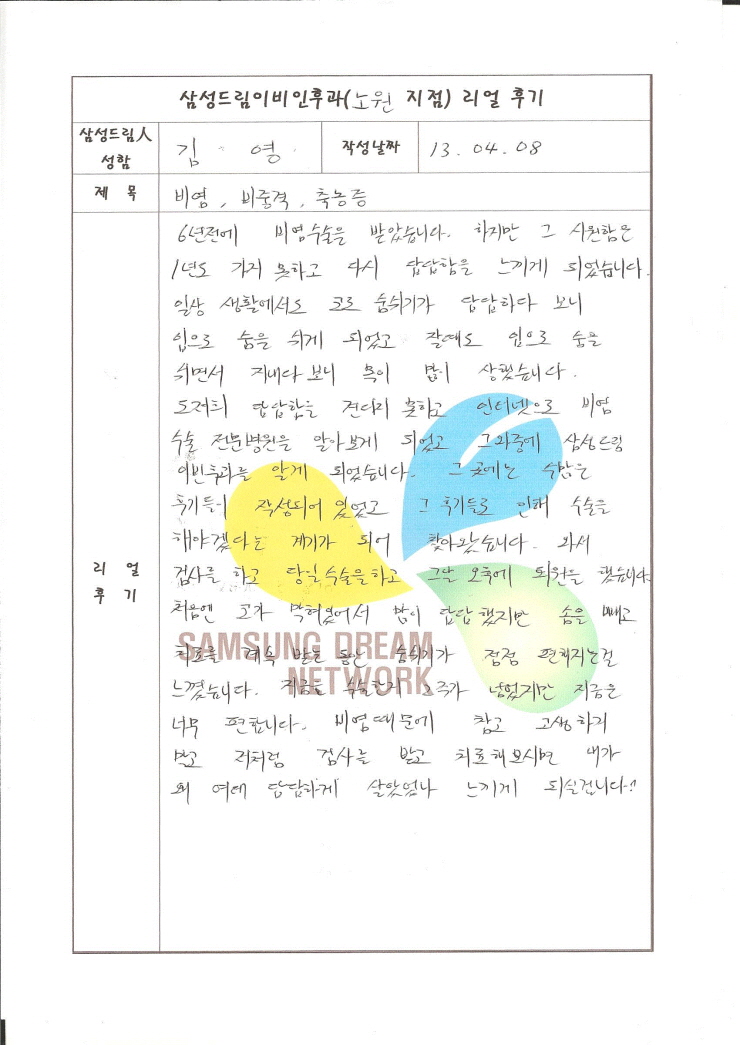 삼성드림이비인후과(노원 지점) 리얼 후기
삼성드림人 성함
김 영
작성날짜
13. 04. 08
제 목
비염, 비중격, 축농증
리 얼 후 기
6년전에 비염수술을 받았습니다. 하지만 그 시원함은
1년도 가지 못하고 다시 답답함을 느끼게 되었습니다.
일상 생활에서도 코로 숨쉬기가 답답하다 보니
입으로 숨을 쉬게 되었고 잘때도 입으로 숨을
쉬면서 지내다 보니 목이 많이 상했습니다.
도저히 답답함을 견디지 못하고 인터넷으로 비염
수술 전문병원을 알아보게 되었고 그와중에 삼성드림
이빈후과를 알게 되었습니다. 그 곳에는 수많은
후기들이 작성되어 있었고 그 후기들로 인해 수술을
해야겠다는 계기가 되어 찾아왔습니다. 와서
검사를 하고 당일수술을하고 그날 오후에 퇴원을 했습니다.
처음엔 코가 막혀있어서 많이 답답했지만 솜을 빼고
치료를 계속 받는 동안 숨쉬기가 점점 편해지는걸
느꼈습니다. 지금은 수술한지 2주가 넘었지만 지금은
너무 편합니다. 비염때문에 참고 고생하지
말고 저처럼 검사를 받고 치료해보시면 내가
왜 여태 답답하게 살았었나 느끼게 되실겁니다!
SAMSUNG DREAM
NETWORK